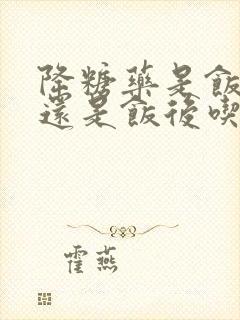 降糖藥是飯
還是飯後喫
霍燕